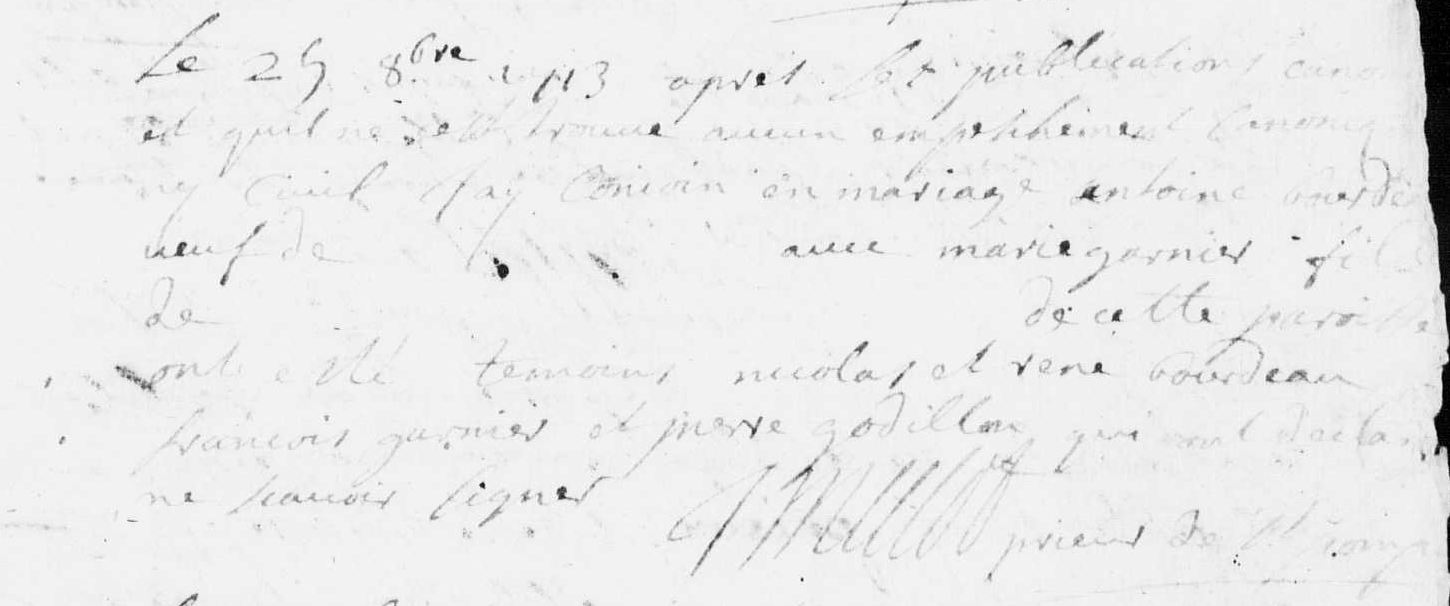 Le 25 8bre 1713 apres les publications canon
et quil ne sest trouve aucun empeshement Canoniq
ny Civil Jay Conioin en mariage antoine bourde
veuf de avec marie garnier fil
de de cette paroisse
ont esté temoins nicolas et rené bourdeau
francois garnier et pierre godillon qui ont declar
ne scavoir signer
prieur de St